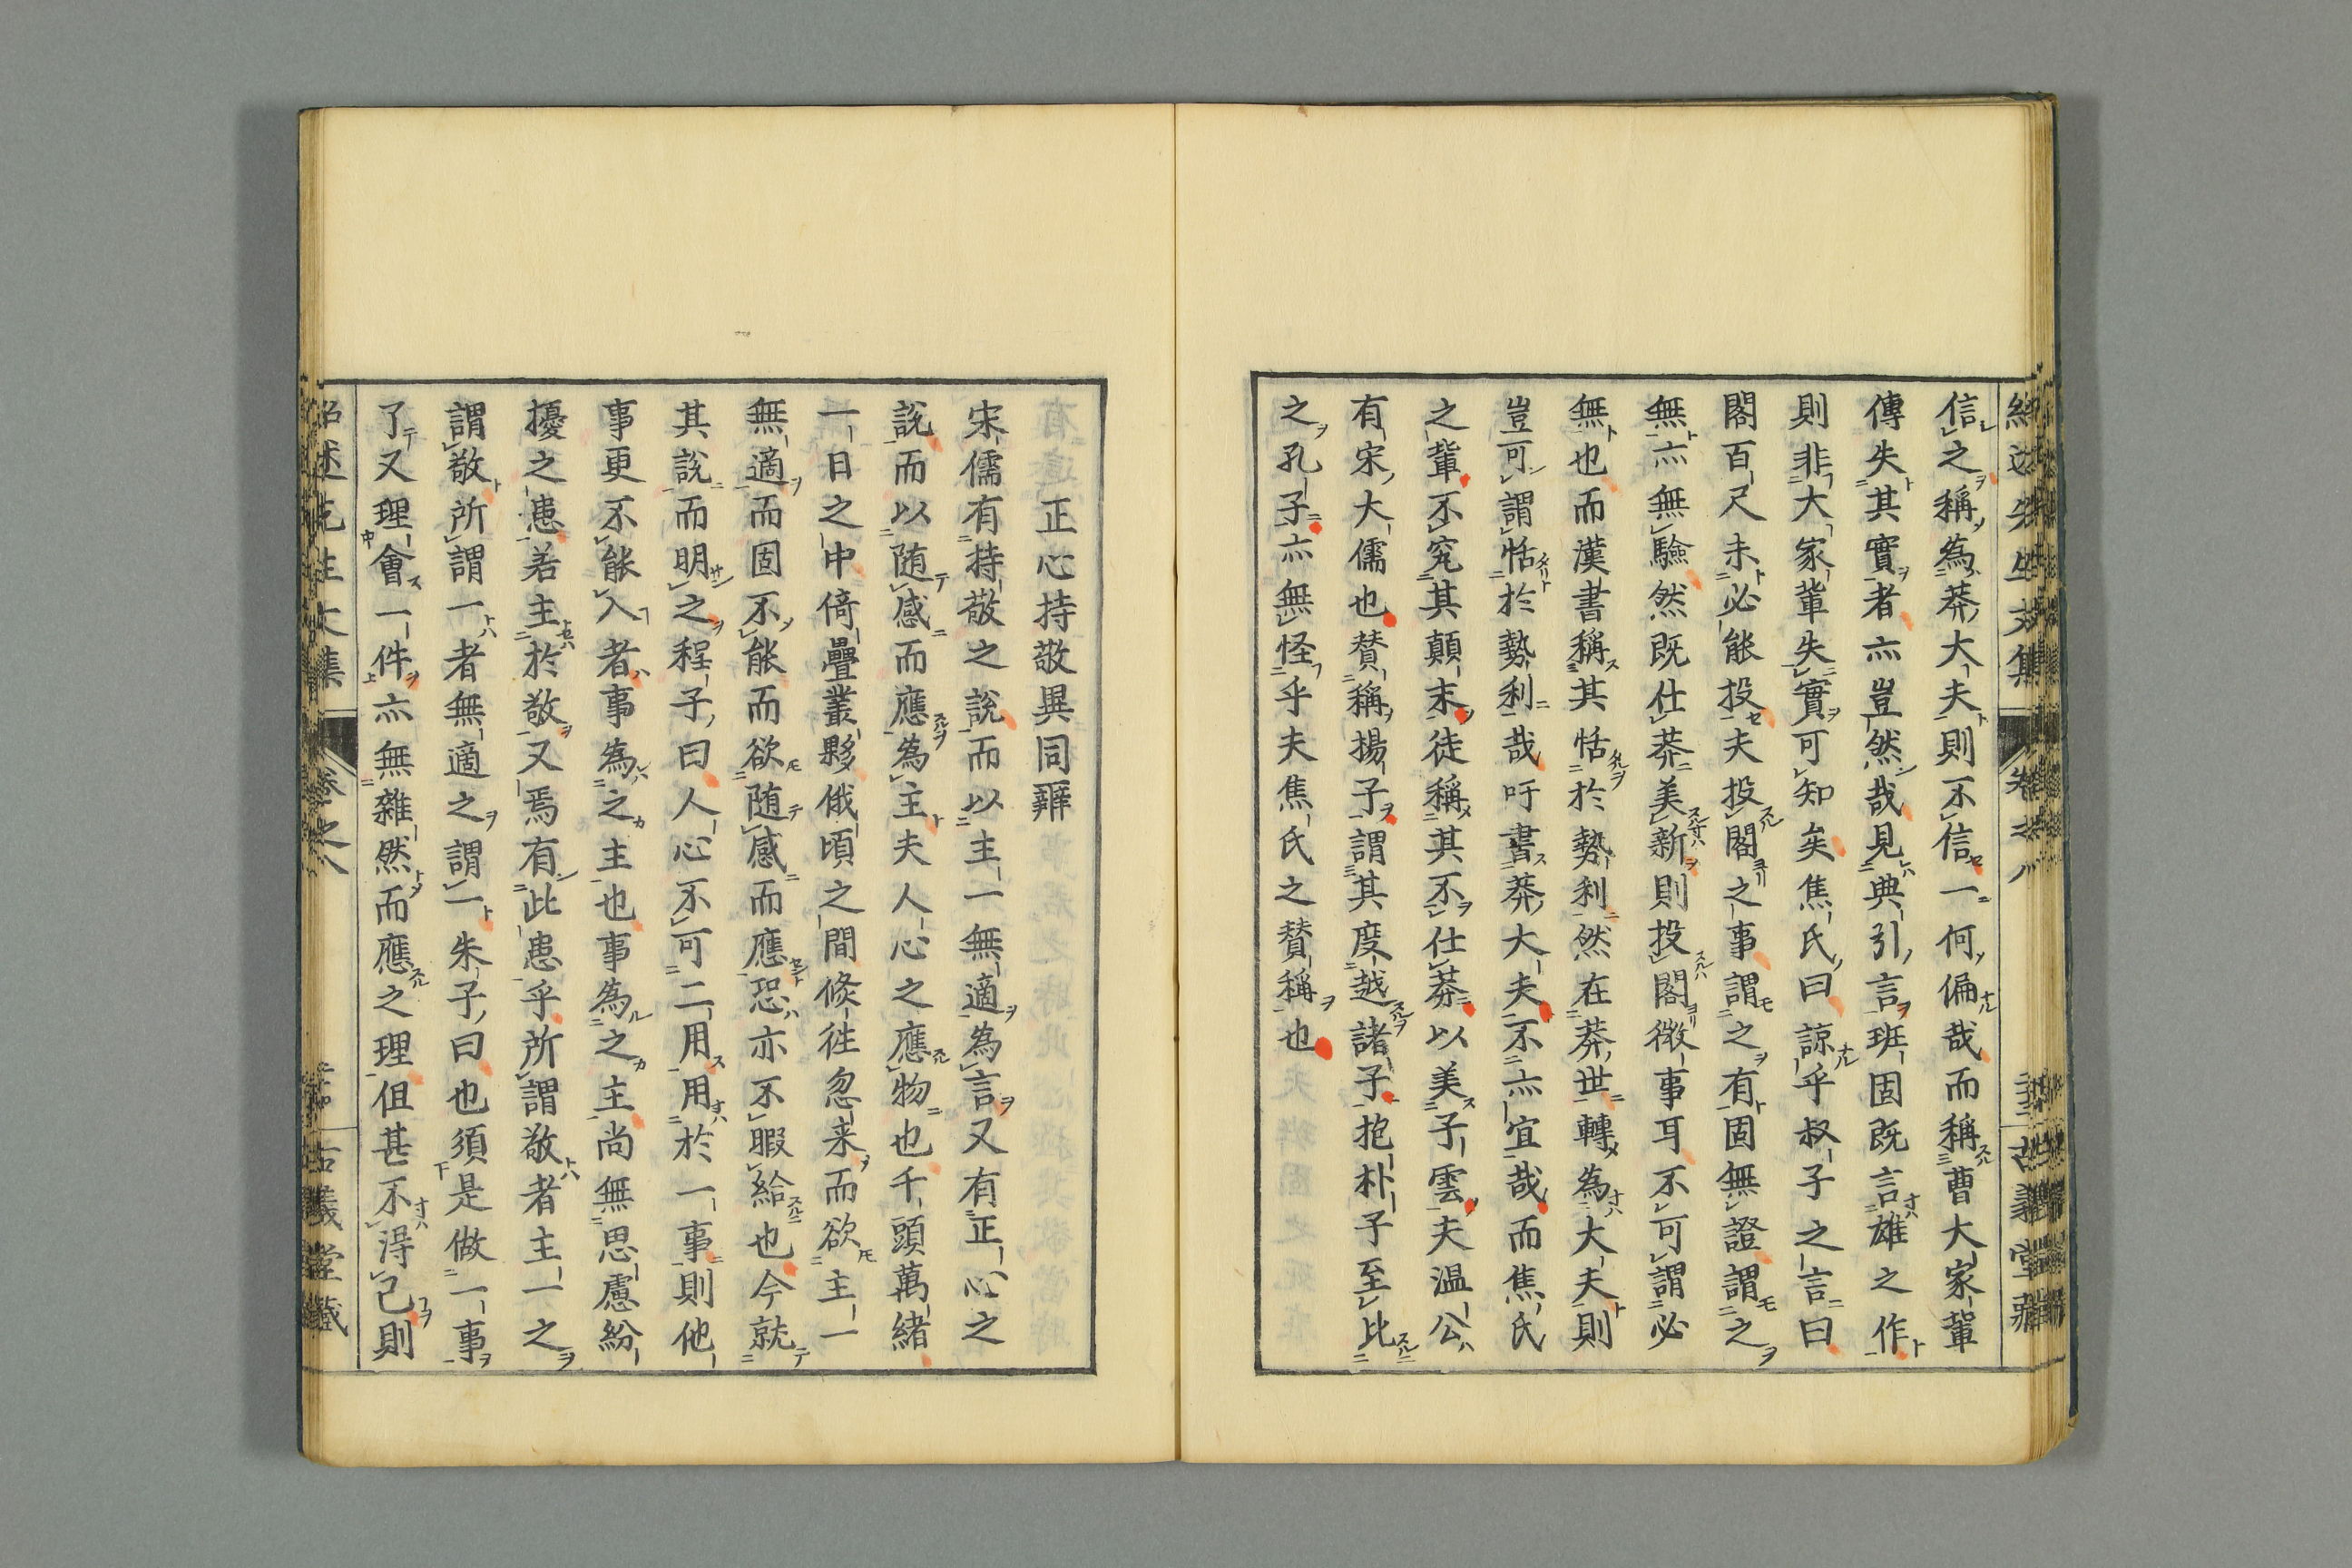 信之稱為莽大夫則不信一何偏哉而稱曹大家輩
傳失其實者亦豈然哉見典引言班固既言雄之作
則非大家輩失實可知矣焦氏曰諒乎叔子之言曰
閣百尺未必能投夫投閣之事謂之有固無證謂之
無亦無驗然既仕莽美新則投閣微事耳不可謂必
無也而漢書稱其恬於勢利然在莽世轉為大夫則
豈可謂恬於勢利哉吁書莽大夫不亦宜哉而焦氏
之輩不究其顛末徒稱其不仕莽以美子雲夫溫公
有宋大儒也賛稱揚子謂其度越諸子抱朴子至比
之孔子亦無怪乎夫焦氏之賛稱也
正心持敬異同辨
宋儒有持敬之說而以主一無適為言又有正心之
說而以随感而應為主夫人心之應物也千頭萬緒
一日之中倚疊叢夥俄頃之間倐徃忽来而欲主一
無適而固不能而欲随感而應恐亦不暇給也今就
其說而明之程子曰人心不可二用用於一事則他
事更不能入者事為之主也事為之主尚無思慮紛
擾之患若主於敬又焉有此患乎所謂敬者主一之
謂敬所謂一者無適之謂一朱子曰也須是做一事
了又理會一件亦無雜然而應之理但甚不得已則
紹述先生文集 卷之八 古義堂藏